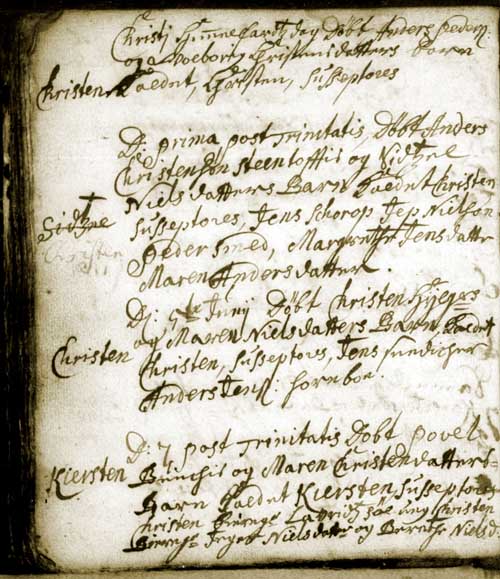 Christj Himmelfardtz dag Döbt Anders Peders:
og Woeborig Christensdatters barn
Christen Kaedet, Christen, Susseptores
D: prima post Trinitatis, Döbt Anders
Christensön Steentofftis og Sidtzel
Niels datters Barn Kaedet Christen
Sidtzel Susseptores, Jens Schorop Jep Nielsön
Christen Peder Smed, Margrethe Jensdatter
Maren Anders datter.
D: Junij Döbt Christen
og Maren Nielsdatters Barn, Kaedet
Christen Christen, Susseptores, Jens
Anders Jens:
D: 7 post Trinitatis Döbt Povel
og Maren Christensdatters
Kiersten Barn Kaedet Kiersten Susseptores
Christen Christen
Nielsdatter og Berethe Niels